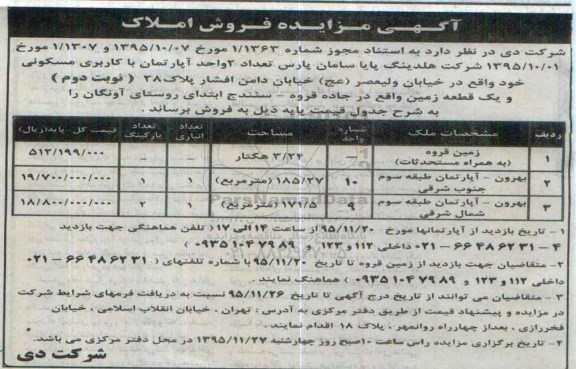 آگهی مزایده فروش املاک
شرکت دی در نظر دارد به استناد مجوز شماره ۱/۱۳۶۳ مورخ ۱۳۹۵/۱۰/۰۷ و ۱/۱۳۰۷ مورخ
۱۳۹۵/۱۰/۰۱ شرکت هلدینگ پایا سامان پارس تعداد ۲واحد آپارتمان با کاربری مسکونی
خود واقع در خیابان ولیعصر (عج) خیابان دامن افشار پلاک۲۸ ( نوبت دوم )
و یک قطعه زمین واقع در جاده قروه – سنندج ابتدای روستای آونگان را
به شرح جدول قیمت پایه ذیل به فروش برساند .
ردیف مشخصات ملک شماره واحد مساحت تعداد انباری تعداد پارکینگ قیمت کل-پایه(ریال)
۱ زمین قروه (به همراه مستحدثات) – ۳/۲۴ هکتار – – ۵۱۳/۱۹۹/۰۰۰
۲ بهرون – آپارتمان طبقه سوم جنوب شرقی ۱۰ ۱۸۵/۲۷ (مترمربع) ۱ ۲ ۱۹/۷۰۰/۰۰۰/۰۰۰
۳ بهرون – آپارتمان طبقه سوم شمال شرقی ۹ ۱۷۲/۵ (مترمربع) ۱ ۲ ۱۸/۸۰۰/۰۰۰/۰۰۰
۱ – تاریخ بازدید از آپارتمانها مورخ ۹۵/۱۱/۲۰ از ساعت ۱۴ الی ۱۷ ( تلفن هماهنگی جهت بازدید
۴ – ۶۶۴۸۶۲۳۱ -۰۲۱ داخلی ۱۱۲ و ۱۲۳ و ۰۹۳۵۱۰۴۷۹۸۹ )
۲– متقاضیان جهت بازدید از زمین قروه تا تاریخ ۹۵/۱۱/۲۰ با شماره تلفنهای ( ۶۶۴۸۶۲۳۱ – ۰۲۱
داخلی ۱۱۲ و ۱۲۳ و ۰۹۳۵۱۰۴۷۹۸۹ ) هماهنگ نمایند .
۳ – متقاضیان می توانند از تاریخ درج آگهی تا تاریخ ۹۵/۱۱/۲۶ نسبت به دریافت فرمهای شرایط شرکت
در مزایده و پیشنهاد قیمت از طریق دفتر مرکزی به آدرس : تهران . خیابان انقلاب اسلامی . خیابان
فخررازی . بعداز چهارراه روانمهر . پلاک ۱۸ اقدام نمایند .
۴– تاریخ برگزاری مزایده راس ساعت ۱۰صبح روز چهارشنبه ۱۳۹۵/۱۱/۲۷ در محل دفتر مرکزی می باشد.
شرکت دی